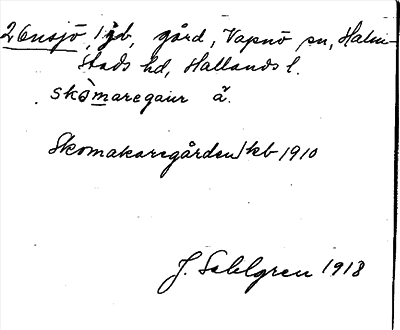 2 Ensjö, 1 jb, gård, Vapnö sn, Halm-
stads hd, Hallands l.
skòmaregaur ä.
Skomakaregården 1 kb 1910
J. Sahlgren 1918